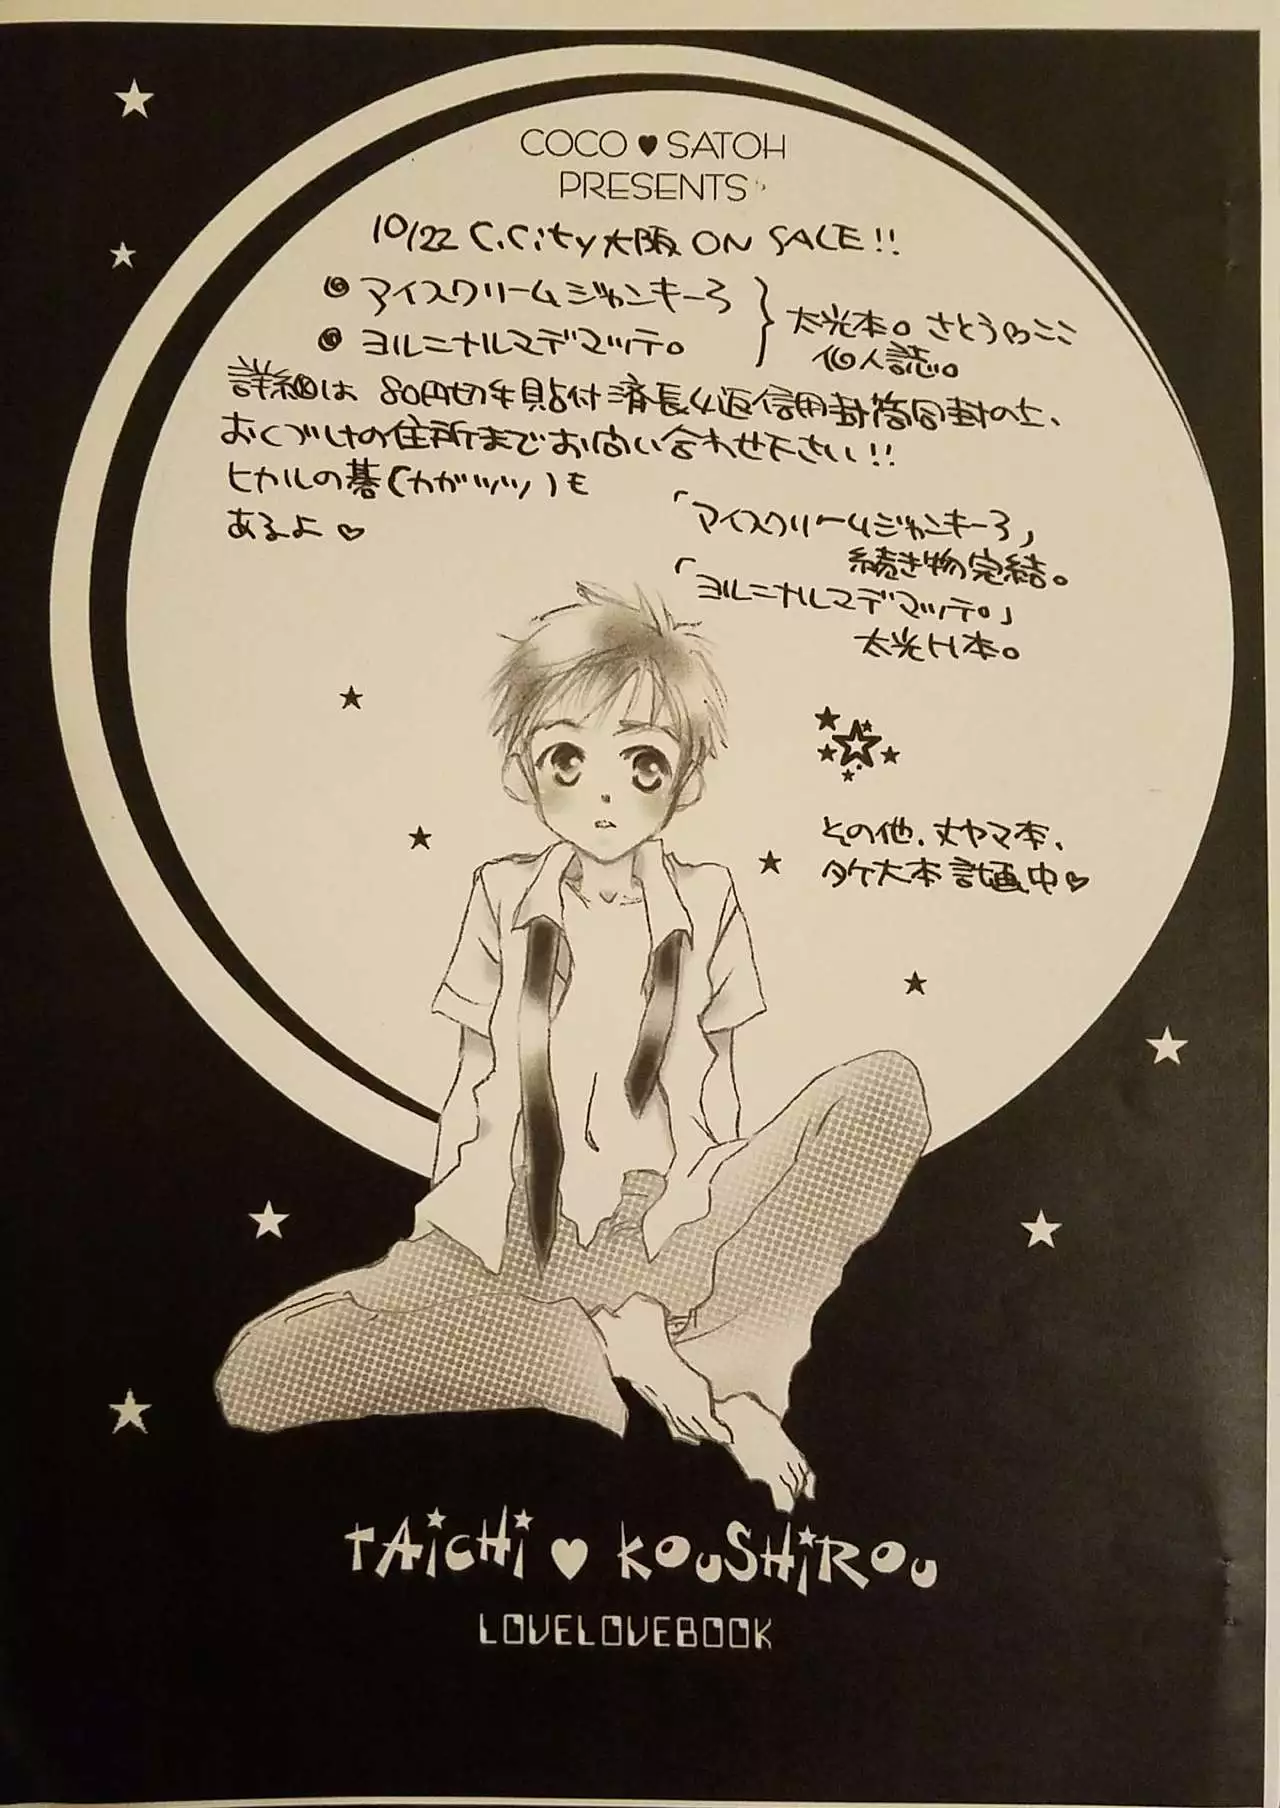 COCO♥SATOH
PRESENTS
10/22 C.City大阪 ON SALE!!
アイスクリームジャンキー3
ヨルニナルマデマッテ。
太光本。さとうココ
個人誌。
詳細は 80円切手貼付済長4返信用封筒同封の上、
おくづけの住所までお問い合わせ下さい!!
ヒカルの碁(カガツツ)も
あるよ♡
「アイスクリームジャンキー3」
続き物完結。
「ヨルニナルマデマッテ。」
太光H本。
その他、丈ヤマ本、
タケ大本 計画中♡
TAiCHi ♥ KOUSHiROU
LOVELOVEBOOK